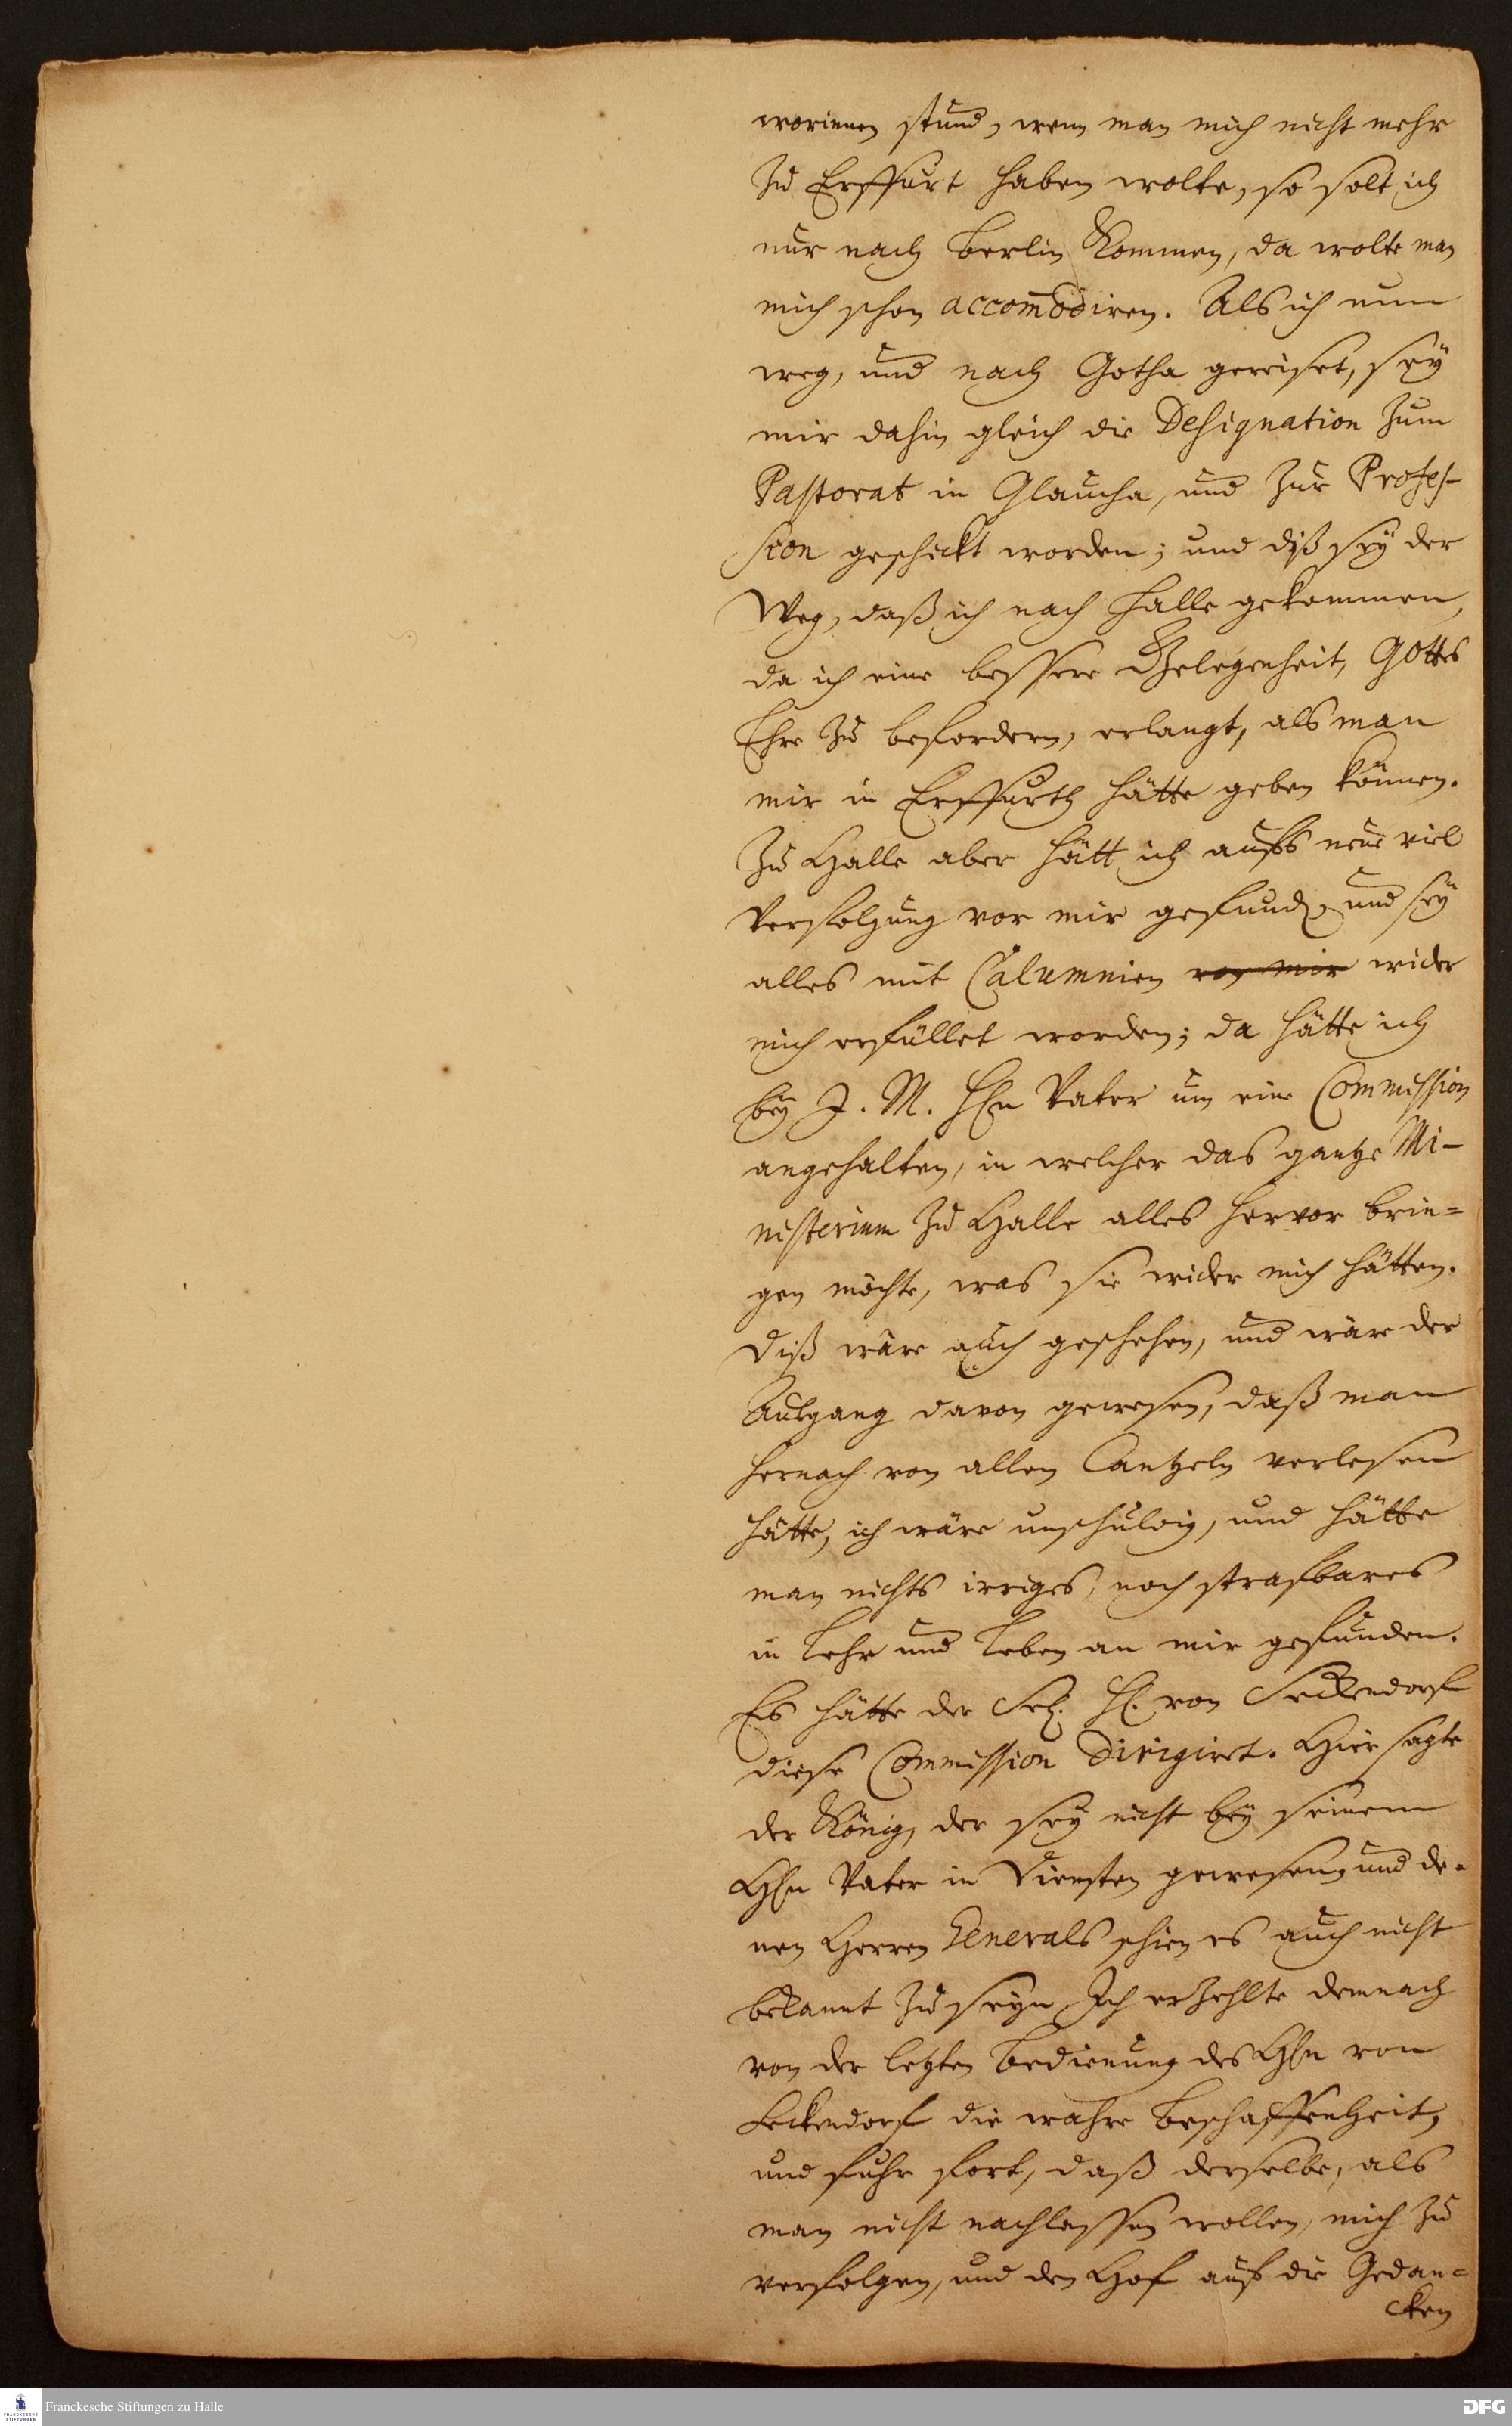 worinnen stund, wenn man mich nicht mehr
zu Erffurt haben wolte, so solt ich
nur nach Berlin kommen, da wolte man
mich schon accom̄odiren. Als ich nun
weg, und nach Gotha gereiset, sey
mir dahin gleich die Designation zum
Pastorat in Glaucha, und zur Profes-
sion geschickt worden; und diß sey der
Weg, daß ich nach Halle gekommen,
da ich eine bessere Gelegenheit, Gottes
Ehre zu befordern, erlangt, als man
mir in Erffurth hätte geben können.
Zu Halle aber hätt ich aufs neue viel
Verfolgung vor mir gefund, und sey
alles mit Calumnien von mir wider
mich erfüllet worden; da hätte ich
bey J. M. Hn Vater um eine Commission
angehalten, in welcher das gantze Mi-
nisterium zu Halle alles hervor brin=
gen möchte, was sie wider mich hätten.
Diß wäre auch geschehen, und wäre der
Ausgang davon gewesen, daß man
hernach von allen Cantzeln verlesen
hätte, ich wäre unschuldig, und hätte
man nichts irriges, noch strafbares
in Lehr und Leben an mir gefunden.
Es hätte der Sel. H. von Seckendorf
diese Commission dirigiret. Hier sagte
der König, der sey nicht bey seinem
Hn Vater in Diensten gewesen, und de=
nen Herren Generals schien es auch nicht
bekannt zu seyn. Ich erzehlte demnach
von der letzten Bedienung des Hn von
Seckendorf die wahre Beschaffenheit,
und fuhr fort, daß derselbe, als
man nicht nachlassen wollen, mich zu
verfolgen, und den Hof auf die Gedan=
cken
Franckesche Stiftungen zu Halle
FRANCKESCHE STIFTUNGEN
DFG